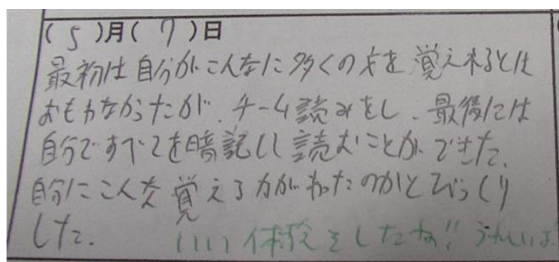 (5)月(7)日
最初は自分がこんなに多くの文を覚えれるとは
おもわなかったが、チーム読みをし、最後には
自分ですべてを暗記して読むことができた。
自分にこんな覚える力があったのかとびっくり
した。 いい体験をしたね!! うれしいよ